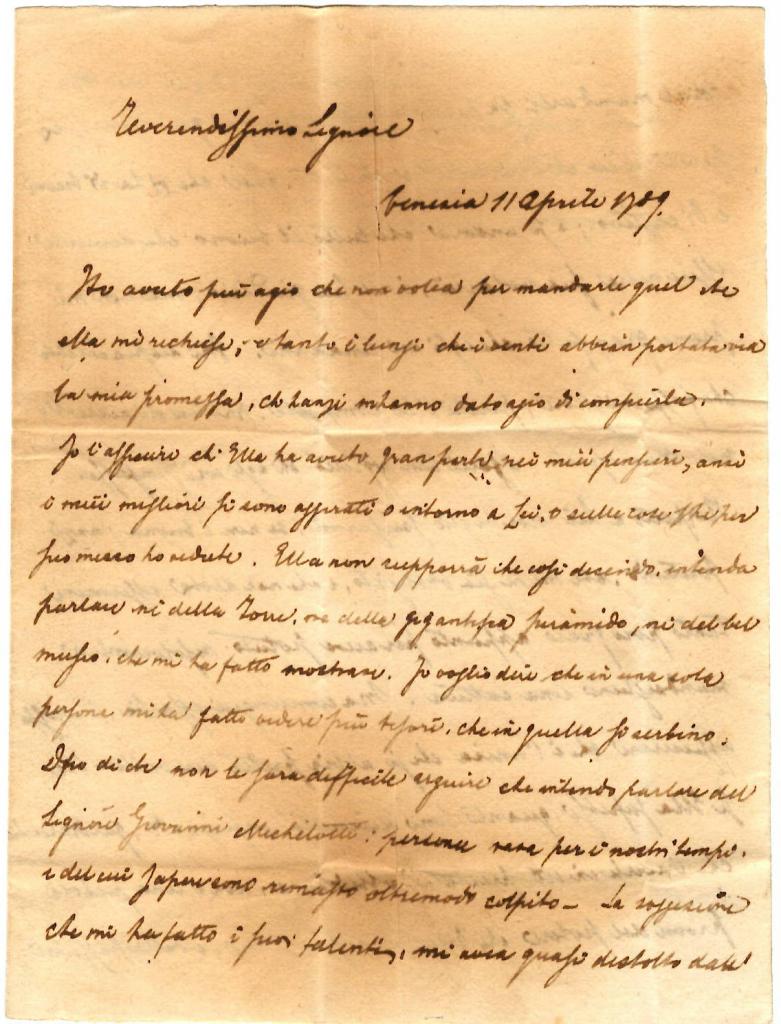 Reverendissimo Signore
Venezia 11 Aprile 1789.
Ho avuto più agio che non volea per mandarle quel che
ella mi richiese, e tanto è lungi che i venti abbian portata via
la mia promessa, ch'anzi m'hanno dato agio di compierla.
Io l'assicuro ch'Ella ha avuto gran parte nei miei pensieri, anzi
i miei migliori si sono aggirati o intorno a Lei, o sulle cose che per
suo mezzo ho vedute. Ella non supporrà che così dicendo, intenda
parlare nè della Torre, nè della gigantesca piramide, nè del bel
museo, che mi ha fatto mostrare. Io voglio dire che in una sola
persona mi ha fatto vedere più tesori, che in quella si serbino.
Dopo di che non le sarà difficile arguire che intendo parlare del
Signore Giovanni Michelotti: persona rara per i nostri tempi,
e del cui sapere sono rimasto oltremodo colpito - La soggezione
che mi ha fatto i suoi talenti, mi avea quasi distolto dall'